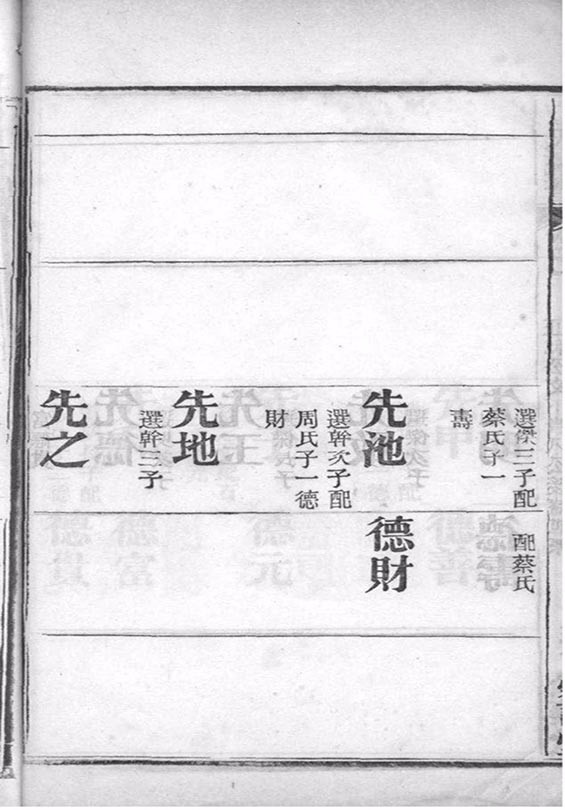 選傑三子配
蔡氏子一
壽
先池
選幹次子配
周氏子一德
財
先地
選幹三子
先之
配蔡氏
德財